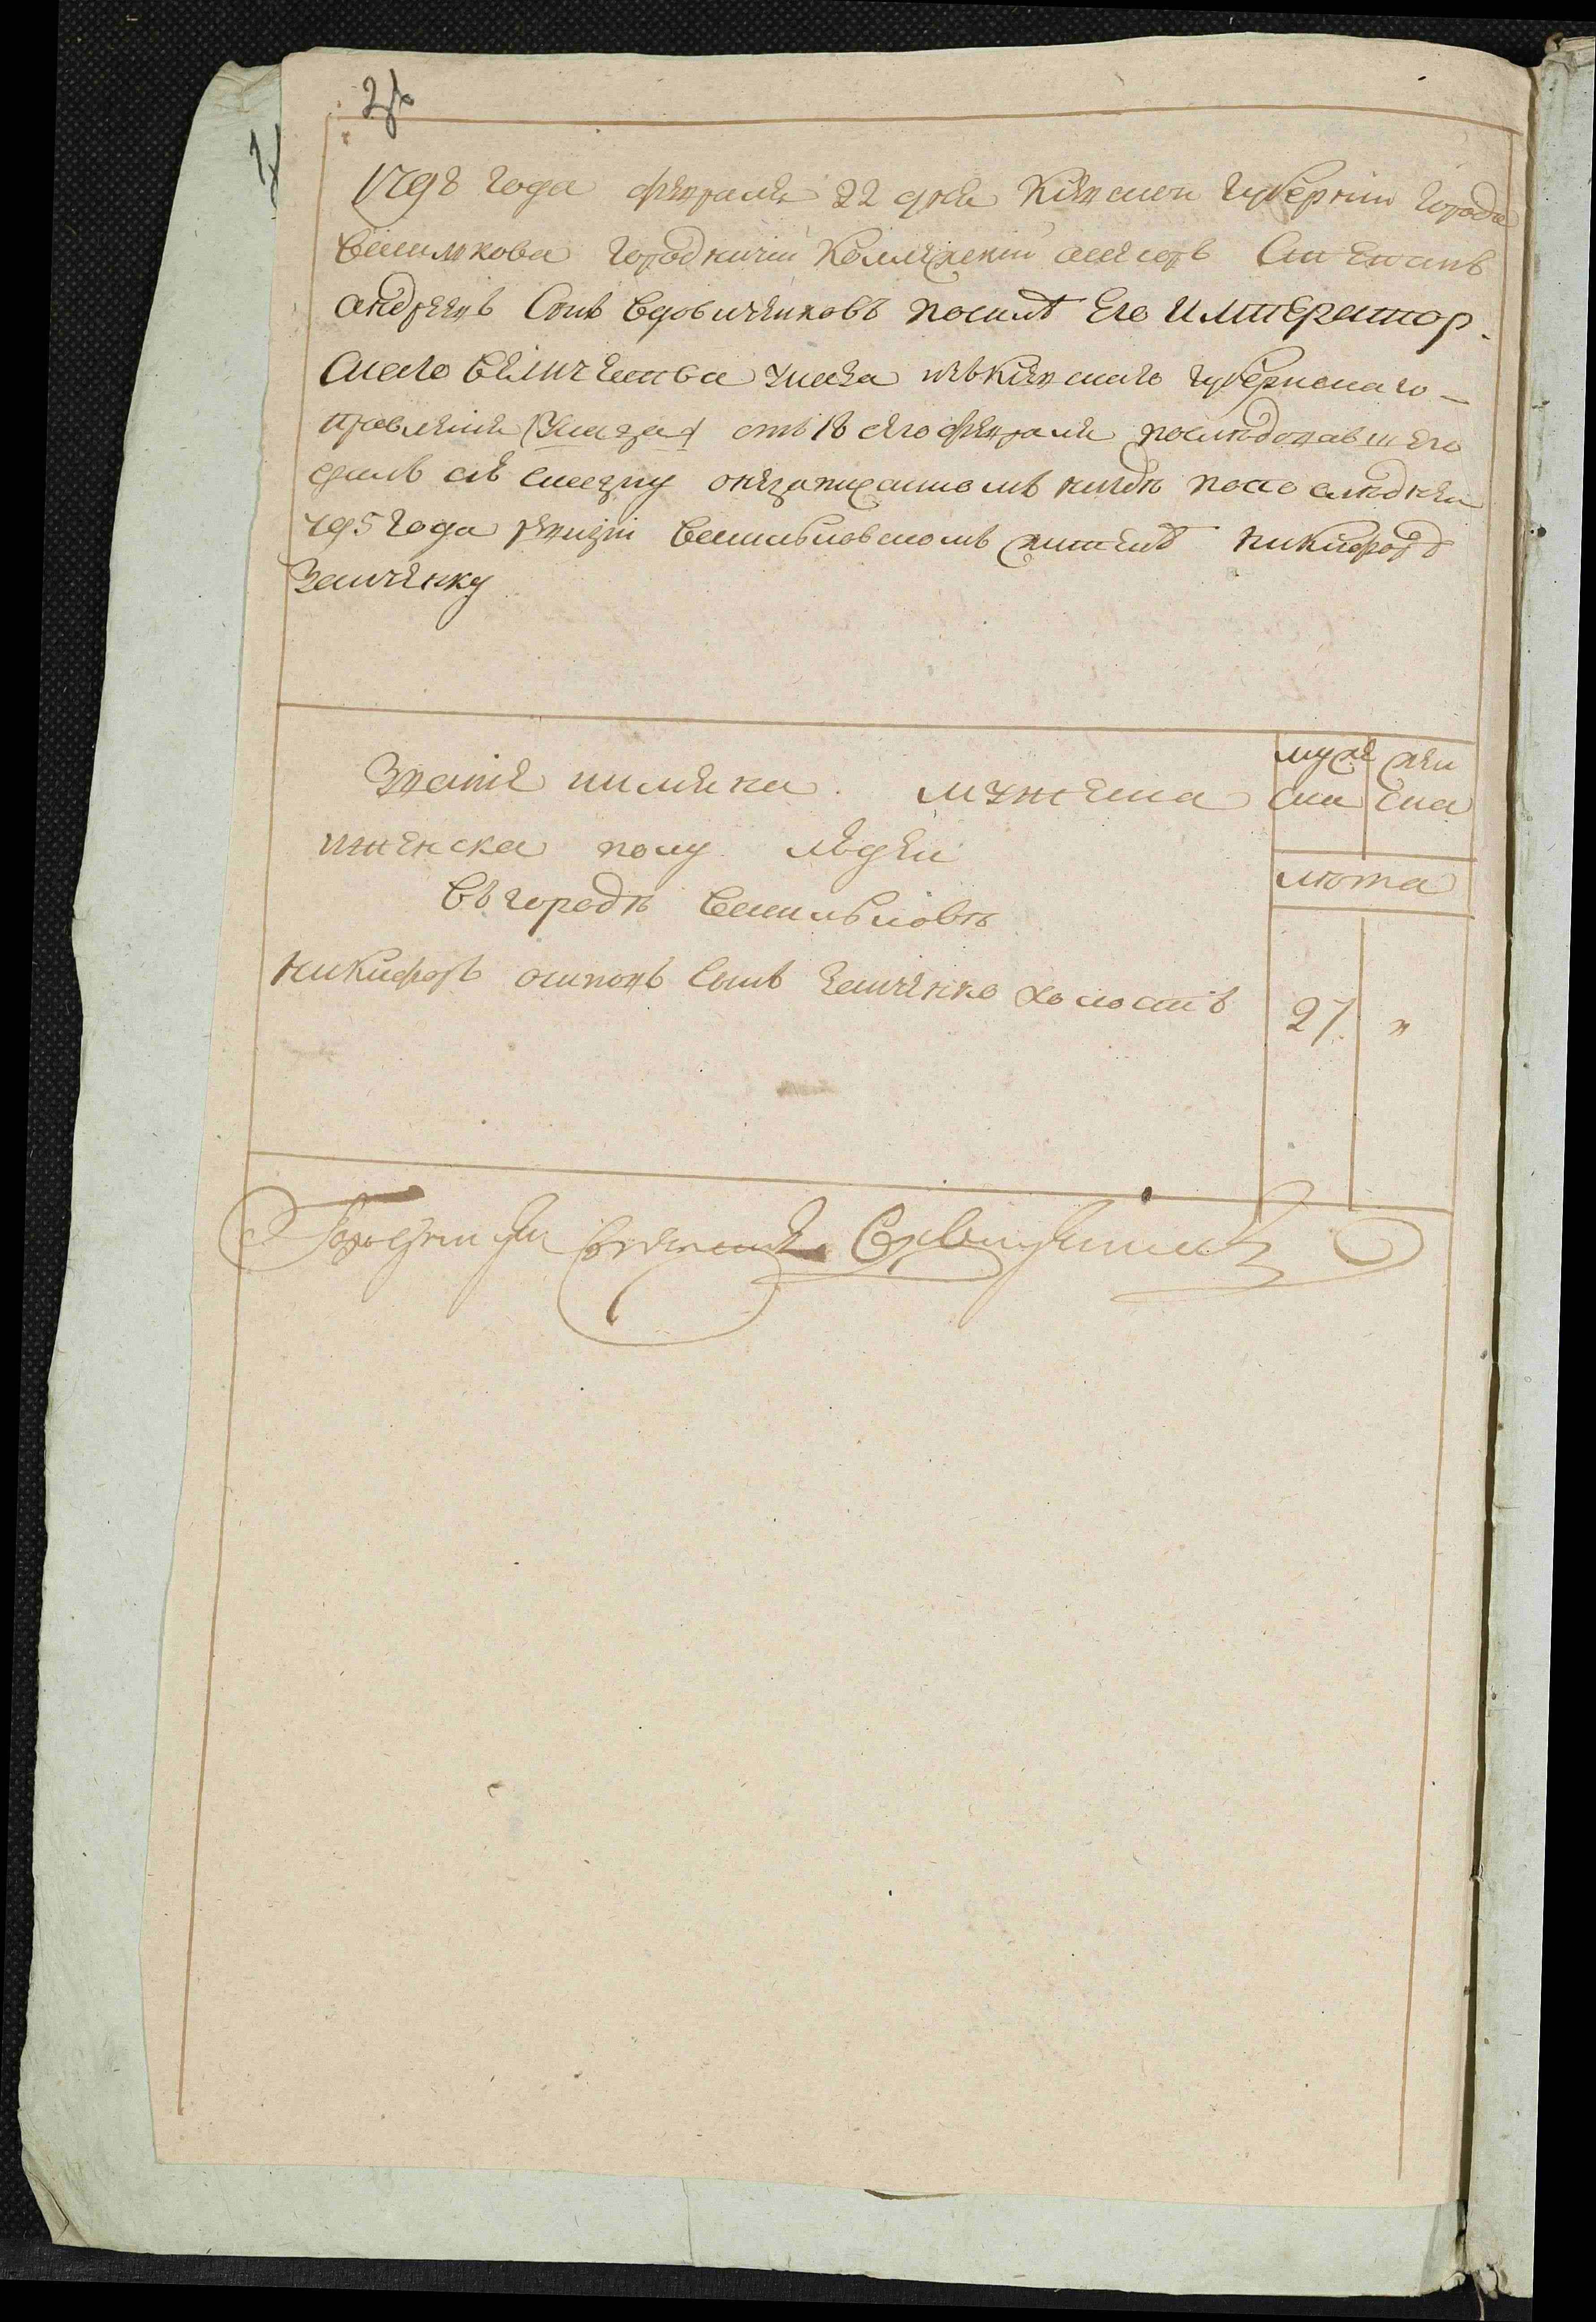 1798 года февраля 22 дня Киевской губернии города
Василкова городничий коллежский асесоръ Степанъ
андреевъ сынъ Вдовиченковъ посиле Его Император-
скаго величества указа изъ киевскаго губернскаго
правления (указа) отъ 18 сего февраля последовавшего
далъ сию скаску о незаписаномъ нигде попоследней
795 года ревизии Васильковскомъ жителе никифоре
Заиченку
Звание имяна мужеска
иженска полу людей
Въ городе Василькове
никифоръ осиповъ сынъ Заиченко холостъ
муже
ска
жен
ска
лета
27 "
Городничий